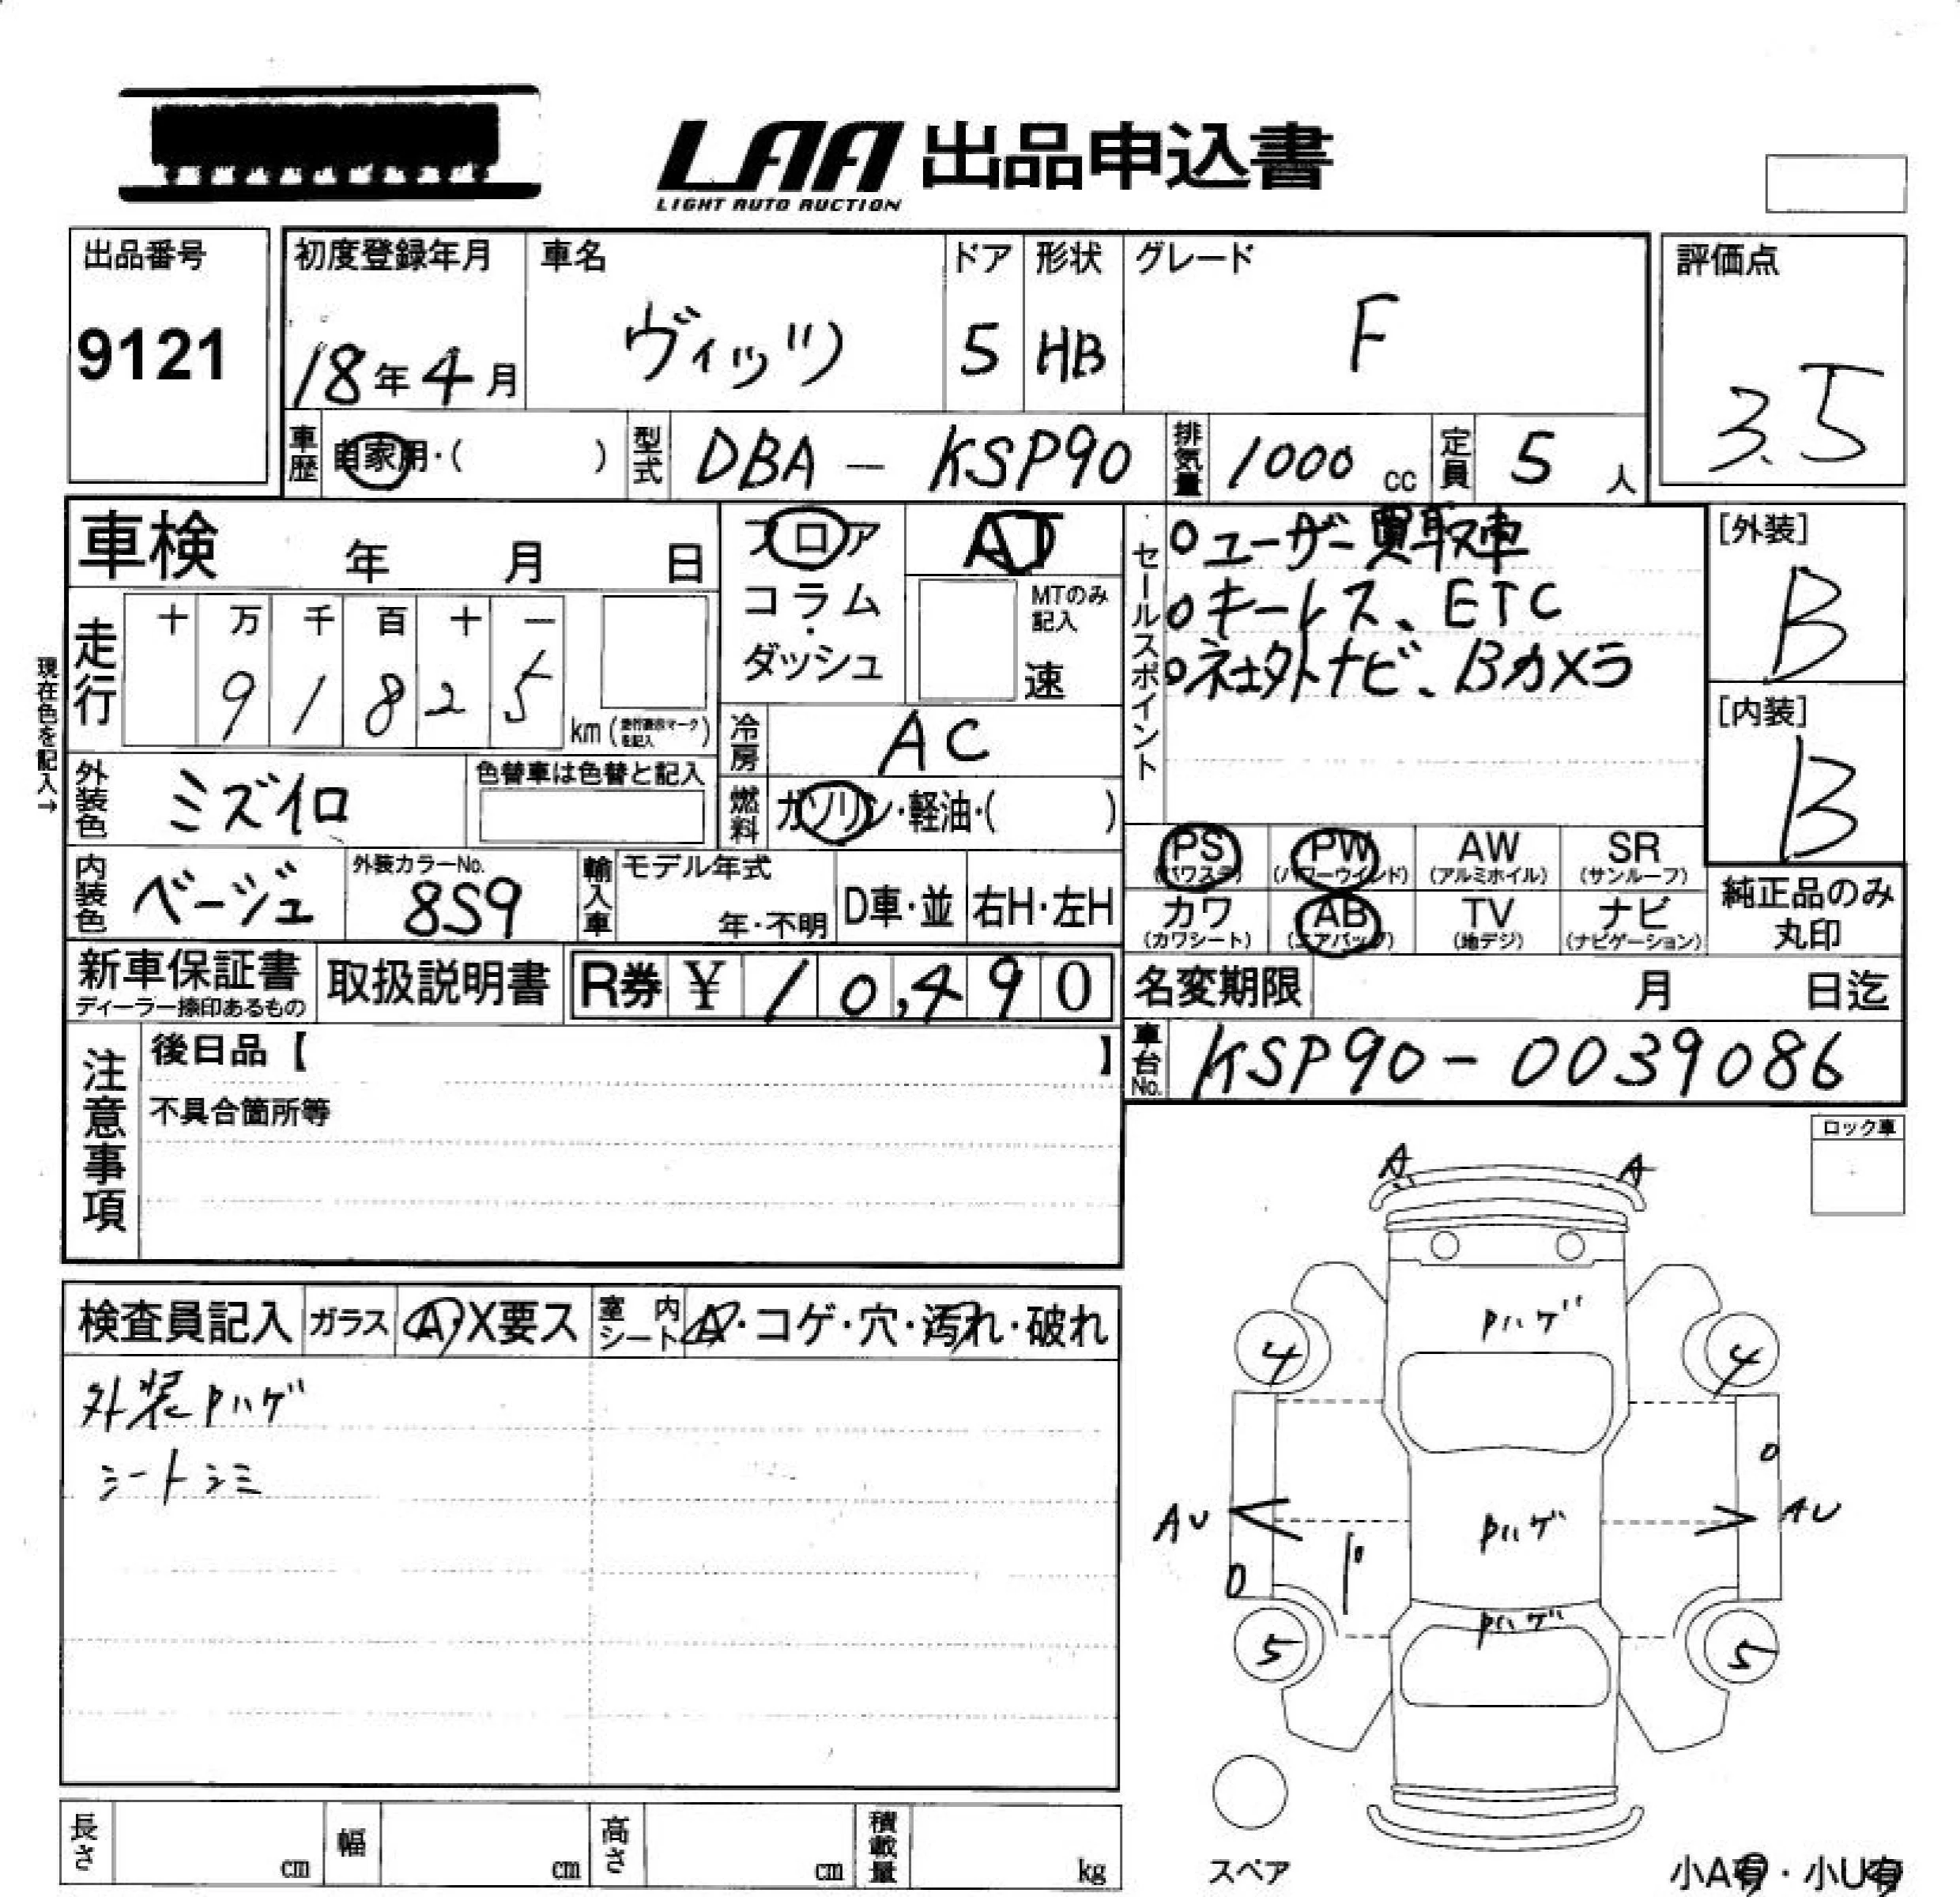 LAA 出品申込書
LIGHT AUTO AUCTION
出品番号
9121
初度登録年月
18年4月
車名
ヴィッツ
ドア
5
形状
HB
グレード
F
評価点
3.5
車歴
自家用・( )
型式
DBA - KSP90
排気量
1000 cc
定員
5 人
車検 年 月 日
現在色を記入→
走行
十 万 千 百 十 一
9 1 8 2 5
km (走行表示マークを記入)
フロア
コラム
・
ダッシュ
AT
MTのみ記入
速
セールスポイント
○ユーザー買取車
○キーレス、ETC
○社外ナビ、Bカメラ
[外装]
B
[内装]
B
冷房
AC
外装色
ミズイロ
色替車は色替と記入
燃料
ガソリン・軽油・( )
PS
(パワステ)
PW
(パワーウインド)
AW
(アルミホイル)
SR
(サンルーフ)
内装色
ベージュ
外装カラーNo.
8S9
輸入車
モデル年式
年・不明
D車・並
右H・左H
カワ
(カワシート)
AB
(エアバッグ)
TV
(地デジ)
ナビ
(ナビゲーション)
純正品のみ
丸印
新車保証書
ディーラー捺印あるもの
取扱説明書
R券 ¥ 10,490
名変期限 月 日迄
注意事項
後日品【 】
不具合箇所等
車台No.
KSP90-0039086
ロック車
検査員記入
ガラス
A・X要ス
室内
シート
A・コゲ・穴・汚れ・破れ
外装Pハゲ
シートシミ
A A
Pハゲ
4 4
0
AU Pハゲ AU
0
Pハゲ
5 5
スペア
長さ cm
幅 cm
高さ cm
積載量 kg
小A有・小U有